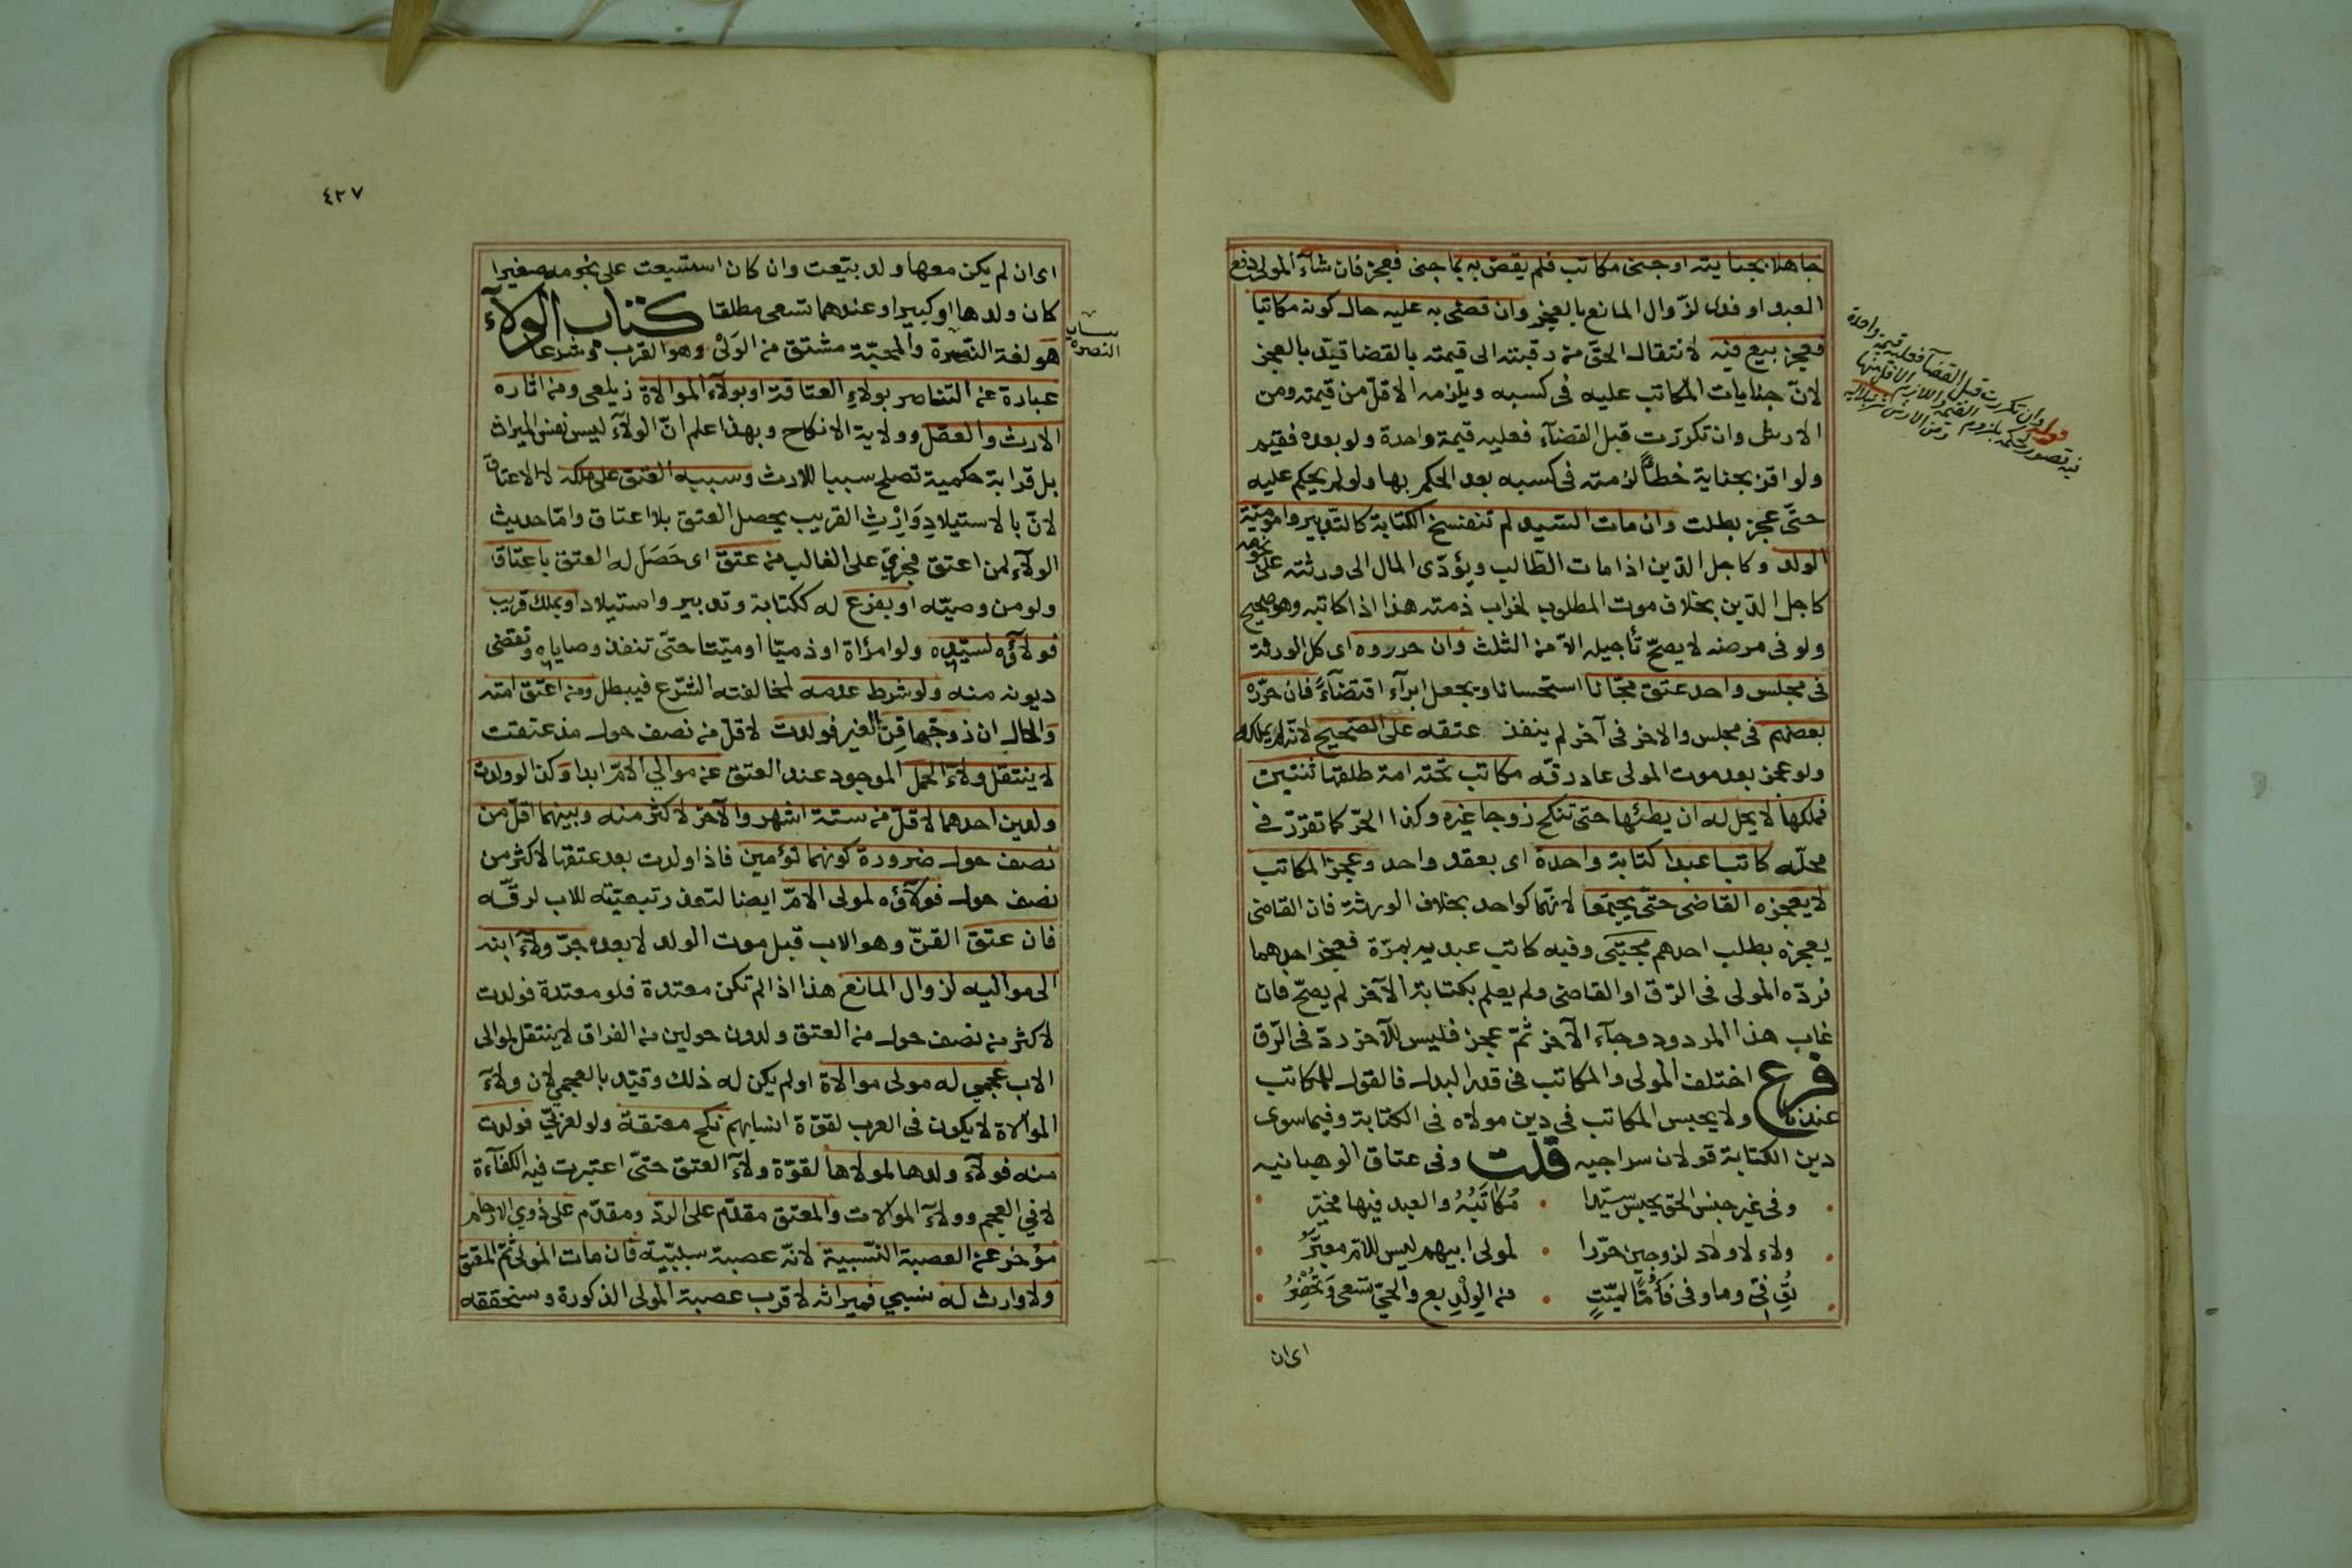 جاهلا بجنايته او جنى مكاتب فلم يقض به بما جنى فعجز فان شآء المولى دفع
العبد او فدى لزوال المانع بالعجز وان قضى به عليه حال كونه مكاتبا
فعجز بيع فيه لانتقال الحق من رقبته الى قيمته بالقضا قيد بالعجز
لانّ جنايات المكاتب عليه فى كسبه ويلزمه الاقلّ من قيمته ومن
الارش وان تكررت قبل القضآء فعليه قيمة واحدة ولو بعده فقيم
ولو اقر بجناية خطأً لزمته فى كسبه بعد الحكم بها ولو لم يحكم عليه
حتّى عجز بطلت وان مات السّيد لم تنفسخ الكتابة كالتدبير وامومية
الولد وكاجل الدّين اذا مات الطّالب ويؤدّى المال الى ورثته على نجومه
كاجل الدّين بخلاف موت المطلوب لخراب ذمته هذا اذا كاتبه وهو صحيح
ولو فى مرضه لا يصحّ تأجيله الاّ من الثلث وان حرروه اى كل الورثة
فى مجلس واحد عتق مجّانا استحسانا ويجعل ابرآء اقتضآءً فان حرّره
بعضهم فى مجلس والاخر فى آخر لم ينفذ عتقه على الصّحيح لانّه لم يملكه
ولو عجز بعد موت المولى عاد رقّه مكاتب تحته امة طلقها ثنتين
فملكها لا يحل له ان يطئها حتى تنكح زوجا غيره وكذا الحرّ كما تقرّر فى
محلّه كاتبا عبدا كتابة واحدة اى بعقد واحد وعجز المكاتب
لا يعجزه القاضى حتّى يجتمعا لانّهما كواحد بخلاف الورثة فان القاضى
يعجزه بطلب احدهم مجتبى وفيه كاتب عبديه بمرّة فعجز احدهما
فردّه المولى فى الرّق او القاضى ولم يعلم بكتابة الآخر لم يصحّ فان
غاب هذا المردود وجآء الآخر ثمّ عجز فليس للآخر ردّ فى الرّق
فرع اختلف المولى والمكاتب فى قدر البدل فالقول للمكاتب
عندنا ولا يحبس المكاتب فى دين مولاه فى الكتابة وفيما سوى
دين الكتابة قولان سراجيه قلت وفى عتاق الوهبانيه
وفى غير جنس الحق يحبس سيّدا • مُكاتَبُهُ والعبد فيها مخيّر
ولاء لاولاد لزوجين حرّرا • لمولى ابيهم ليس للامّ معبَرُ
تُوُفّى وما وفى فأُمًّا لميّتٍ • من الولْد بع والحىّ تسعى وتُحْضِرُ
اى ان
قوله وان تكررت قبل القضآء فعليه قيمة واحدة
٤٢٧
اى ان لم يكن معها ولد بيعت وان كان استسعيت على نجومه صغيرا
كان ولدها او كبيرا وعندهما تسعى مطلقا كتاب الولآء
هو لغة النّصرة والمحبّة مشتق من الولى وهو القرب وشرعا
عبارة عن التناصر بولاءِ العتاقة او بولآء الموالاة زيلعى ومن اثاره
الارث والعقل وولاية الانكاح وبهذا علم انّ الولآء ليس نفس الميراث
بل قرابة حكمية تصلح سببا للارث وسببه العتق على ملكه لا الاعتاق
لانّ بالاستيلادِ وَاِرْثِ القريب يحصل العتق بلا اعتاق وامّا حديث
الولآء لمن اعتق فجرى على الغالب من عتق اى حَصَل له العتق باعتاق
ولو من وصيّه او بفرع له ككتابة وتدبير واستيلاد او بملك قريب
فولآؤه لسيّده ولو امرأة او ذميّا او ميّتا حتّى تنفذ وصاياه وتقضى
ديونه منه ولو شرط عدمه لمخالفته الشّرع فيبطل ومن اعتق امته
والحال ان زوجها قِنّ الغير فولدت لاقلّ من نصف حول مذ عتقت
لا ينتقل ولآء الحمل الموجود عند العتق عن موالى الامّ ابدا وكذا لو ولدت
ولدين احدهما لاقلّ من ستة اشهر والآخر لاكثر منه وبينهما اقلّ من
نصف حول ضرورة كونهما توأمين فاذا ولدت بعد عتقها لاكثر من
نصف حول فولآؤه لمولى الامّ ايضا لتعذر تبعيّته للاب لرقّه
فان عتق القنّ وهو الاب قبل موت الولد لا بعده جرّ ولآء ابنه
الى مواليه لزوال المانع هذا اذا لم تكن معتدة فلو معتدة فولدت
لاكثر من نصف حول من العتق ولدون حولين من الفراق لا ينتقل لموالى
الاب عجمى له مولى موالاة او لم يكن له ذلك وقيّد بالعجمى لان ولآء
الموالاة لا يكون فى العرب لقوة انسابهم نكح معتقة ولو لعربىّ فولدت
منه فولآء ولدها لمولاها لقوّة ولآء العتق حتّى اعتبرت فيه الكفآءة
لا فى العجم وولآء الموالات والمعتق مقدّم على الردّ ومقدّم على ذوى الارحام
مؤخر عن العصبة النّسبية لانّه عصبة سببيّة فان مات المولى ثمّ المعتق
ولا وارث له نسبى فميراثه لاقرب عصبة المولى الذكورة وسنحققه